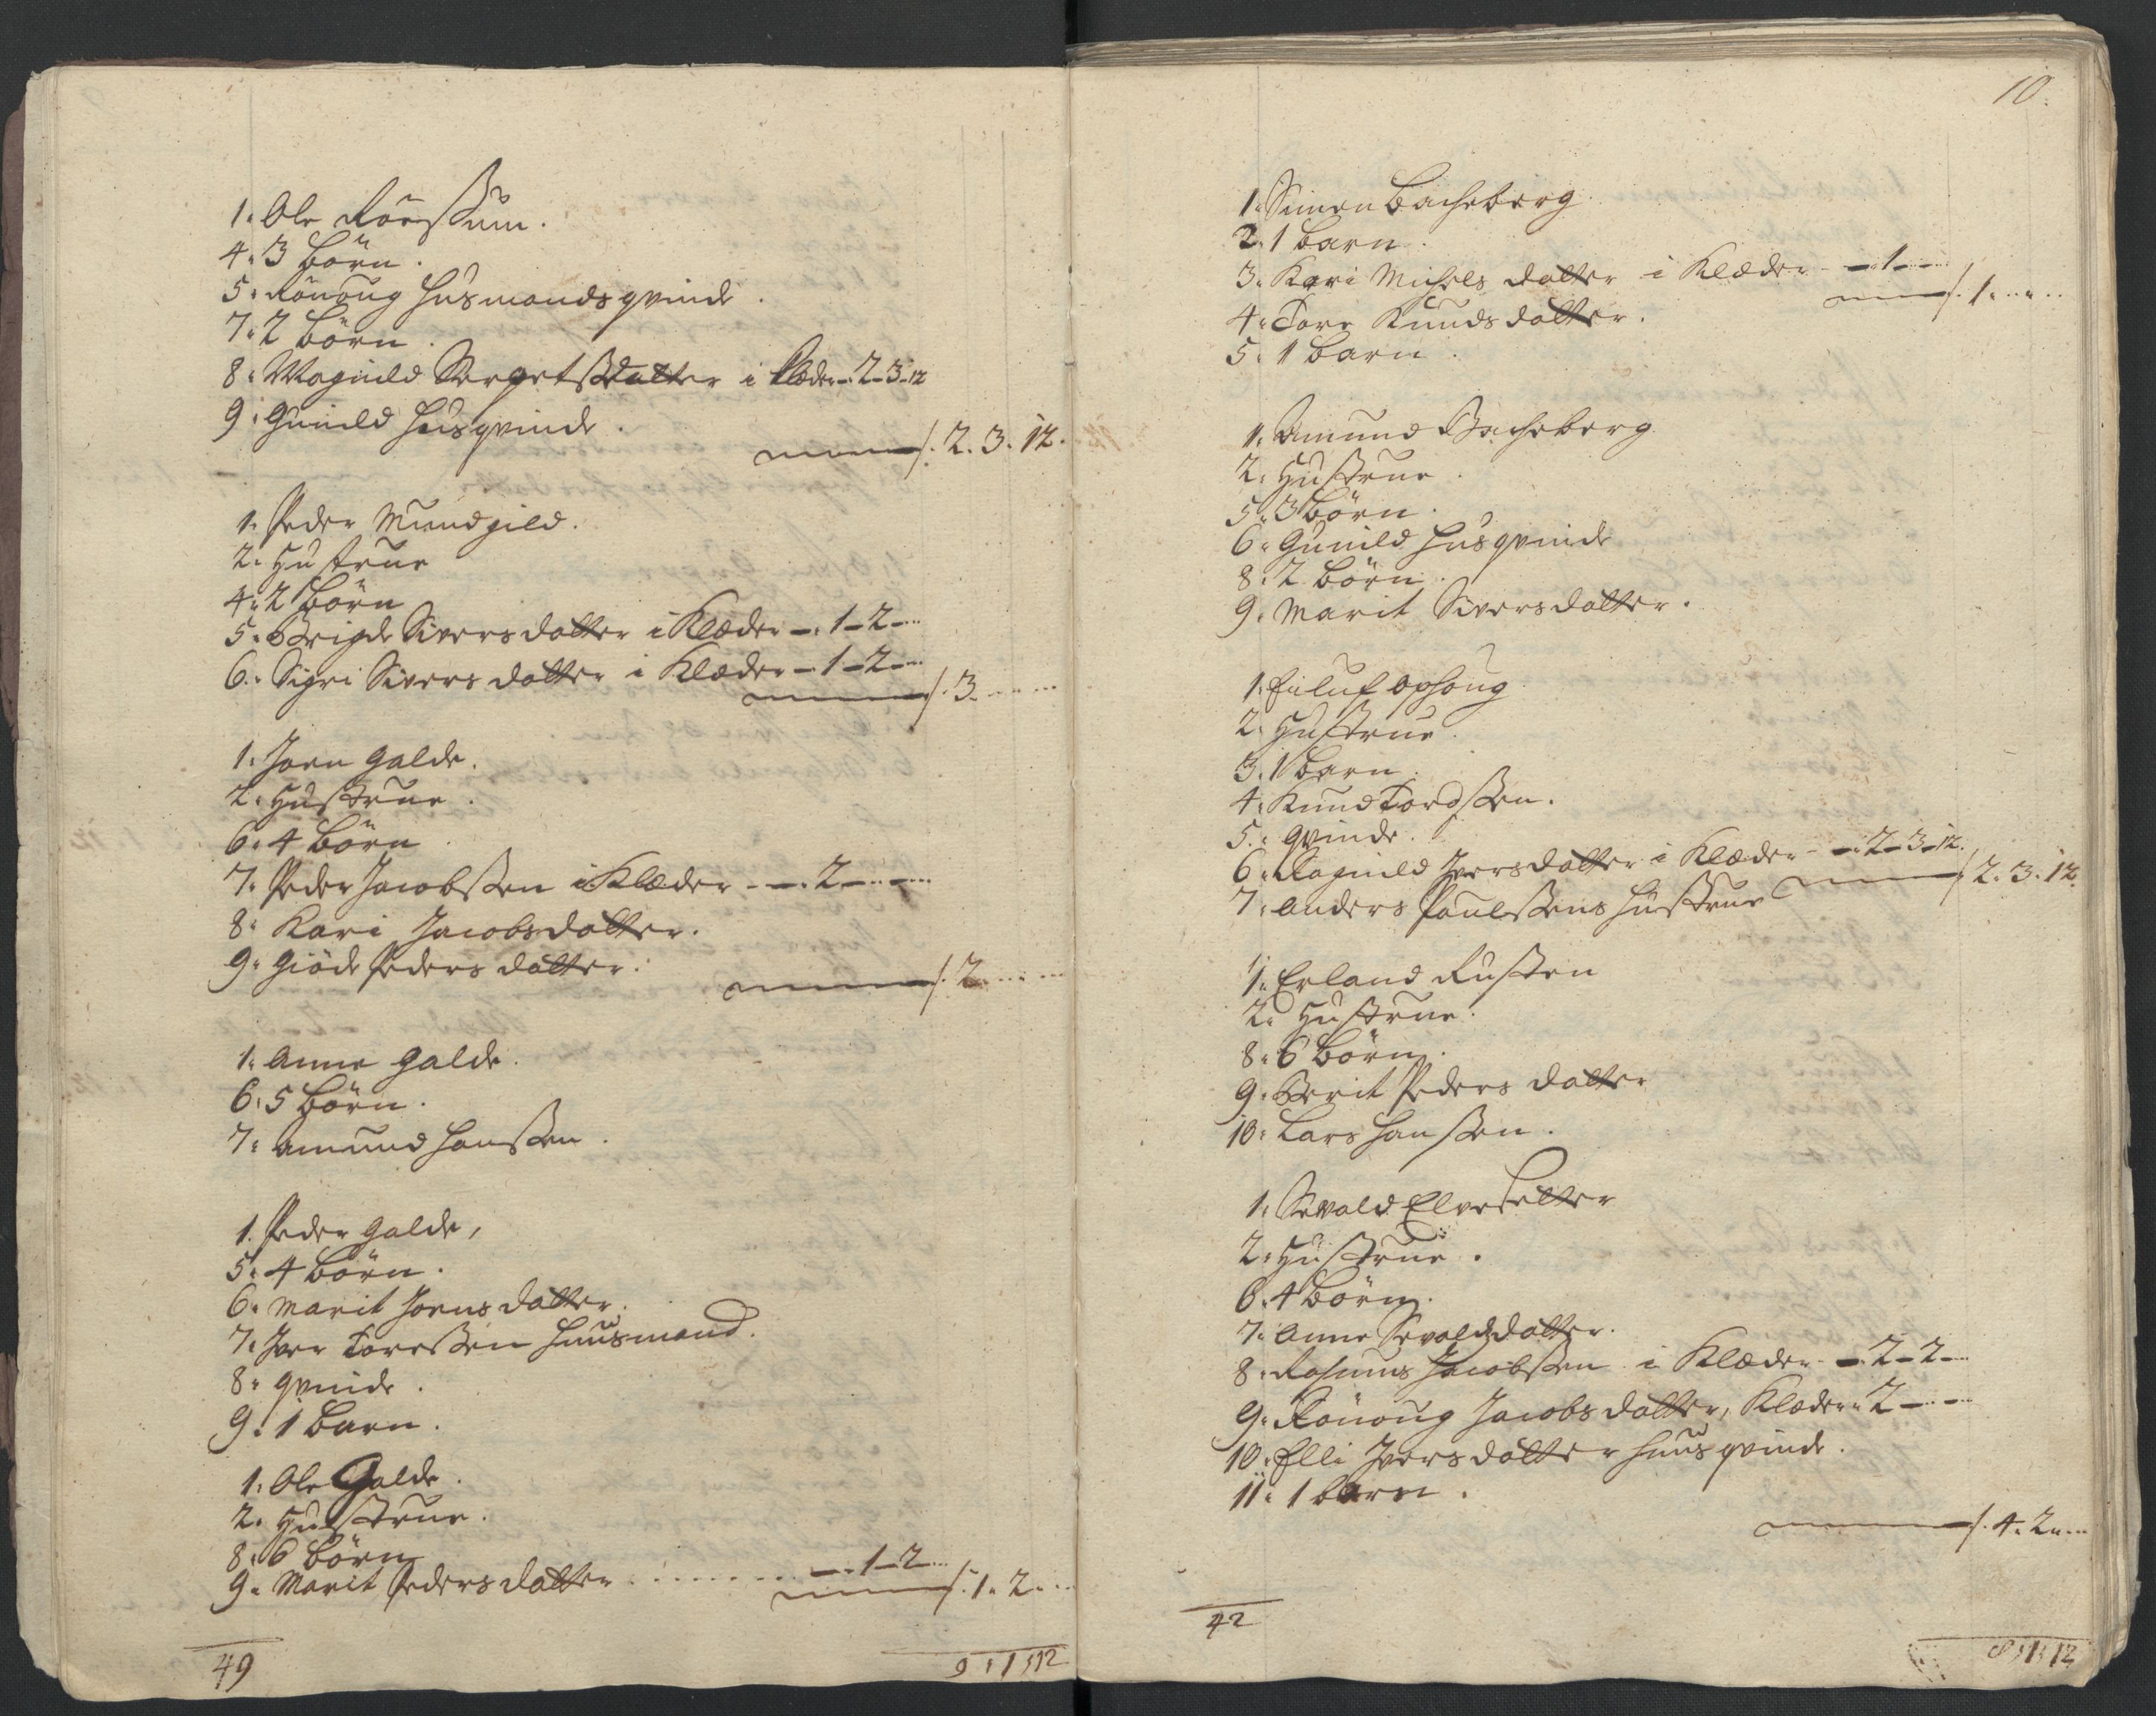 1. Ole Röes um.
4. 3 Börn.
5. Rönoug Husmands qvinde.
7. 2 Börn.
8. Magnild Sergetsdatter i Klæder -. 2 - 3 - 12
9. Gunild Husqvinde.
/. 2. 3. 12.
1. Peder Mundgild.
2. Hustrue
4. 2 Börn
5. Brigde Siversdatter i Klæder -. 1 - 2 -
6. Sigri Sivers datter i Klæder - 1 - 2 -
/. 3.
1. Joen Galde.
2. Hustrue.
6. 4 Börn
7. Peder Jacobssen i Klæder - -. 2 -
8. Kari Jacobsdatter.
9. Giöde Peders datter.
/. 2
1. Anne Galde.
6. 5 Börn.
7. Amund Hanssen.
1. Peder Galde,
5. 4 Börn.
6. Marit Joens datter.
7. Iver Toressen Huusmand.
8. qvinde.
9. 1 Barn.
1. Ole Galde.
2. Hustrue.
8. 6 Börn
9. Marit Pedersdatter . . . . . . . -. 1 - 2
/. 1. 2.
49
9 : 1 : 12
10.
1. Simen Bacheberg.
2. 1 Barn.
3. Kari Michels datter i Klæder - 1 -
/. 1.
4. Tore Knuds datter.
5. 1 Barn.
1. Amund Bacheberg.
2. Hustrue.
5. 3 Börn.
6. Gunild Husqvinde
8. 2 Börn.
9. Marit Siversdatter.
1. Eiluf Ophoug
2. Hustrue.
3. 1 Barn.
4. Knud Tordssen.
5. qvinde.
6. Ragnild Iversdatter i Klæder -. 2 - 3 - 12.
7. Anders Poulssens Hustrue
/. 2. 3. 12.
1. Erland Rusten
2. Hustrue.
8. 6 Börn.
9. Berit Peders datter
10. Lars Hanssen.
1. Sevald Elveseter
2. Hustrue.
6. 4 Börn.
7. Anne Sevaldsdatter.
8. Rasmus Jacobssen i Klæder -. 2 - 2 -
9. Rönoug Jacobs datter, Klæder. 2 -
10. Elli Iversdatter Huusqvinde.
11. 1 barn.
/. 4. 2.
42
8 : 1 : 12